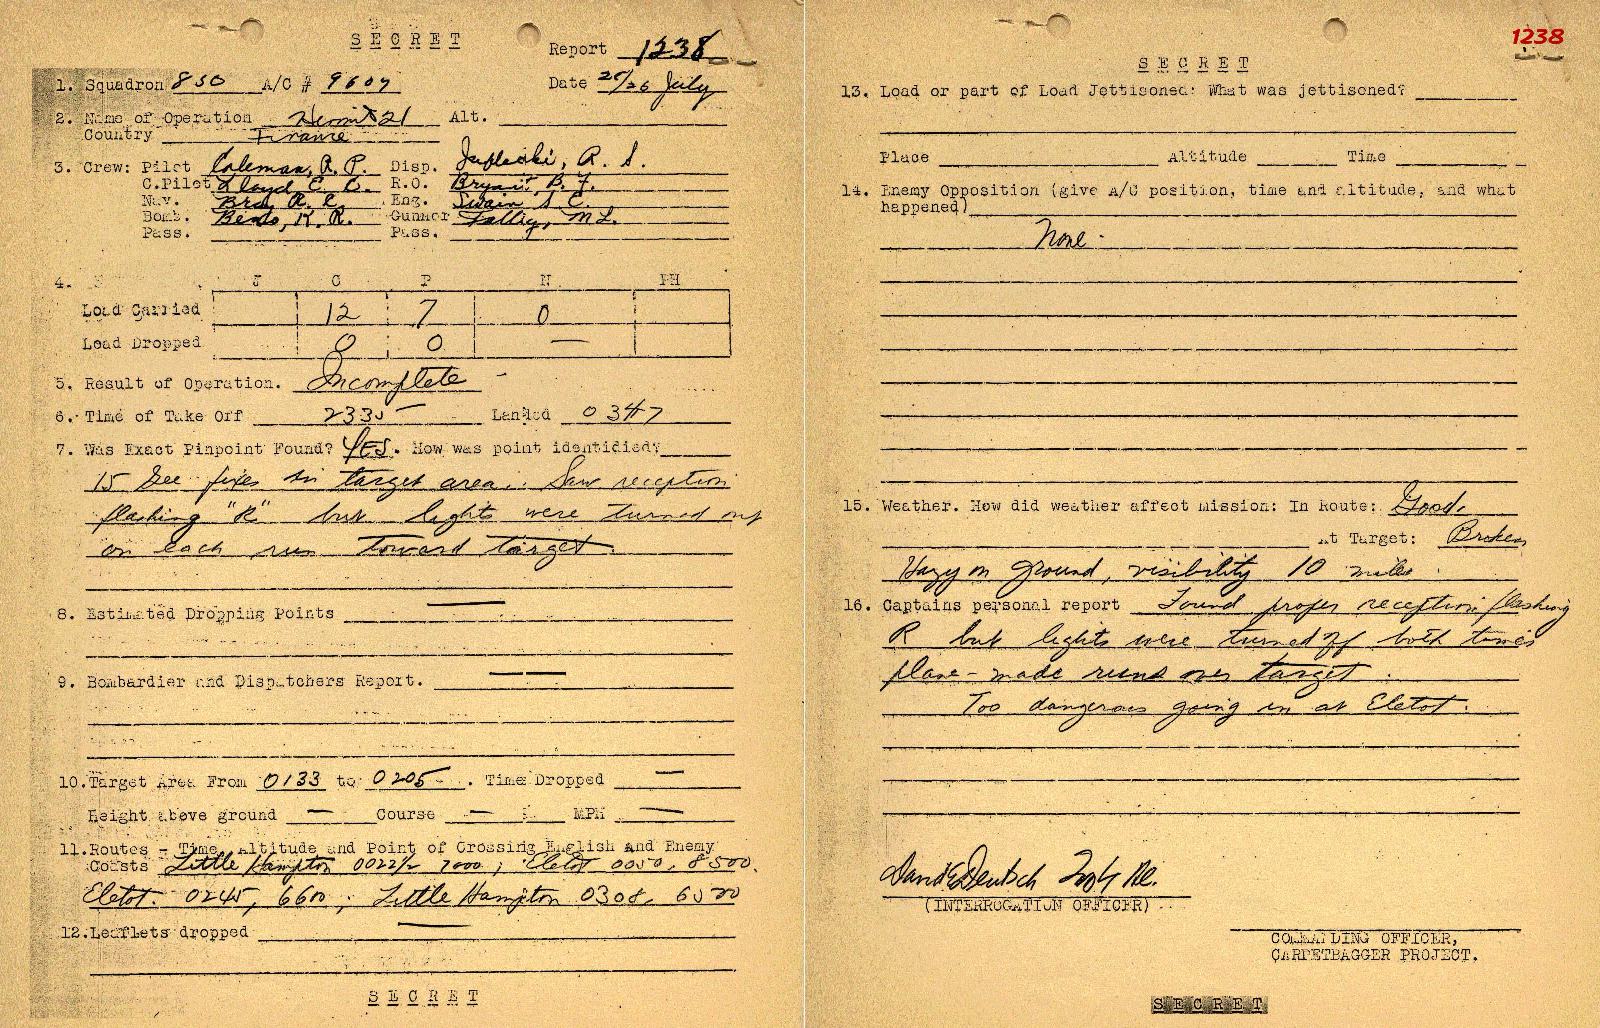 SECRET
Report 1238
1. Squadron 850 A/C # 9609 Date 25/26 July
2. Name of Operation Hermit 21 Alt.
Country France
3. Crew: Pilot Coleman, R. P. Disp. A. S.
C.Pilot Lloyd E. C. R.O. Bryant B. F.
Nav. R. E. Eng. Swain S. C.
Bomb. K. R. Gunner M L.
Pass. Pass.
4. J C P N PH
Load Carried 12 7 0
Load Dropped 0 0 —
5. Result of Operation. Incomplete
6. Time of Take Off 2335 Landed 0347
7. Was Exact Pinpoint Found? YES. How was point identidied?
15 Gee fixes in target area. Saw reception
flashing "R" but lights were turned out
on each run toward target.
8. Estimated Dropping Points —
9. Bombardier and Dispatchers Report. —
10. Target Area From 0133 to 0205. Time Dropped —
Height above ground — Course — MPH —
11. Routes - Time, Altitude and Point of Crossing English and Enemy
Coasts Little Hampton 0022½ 7000; Eletot 0050, 8500.
Eletot. 0245, 6600; Little Hampton 0308, 6500
12. Leaflets dropped —
SECRET
1238
SECRET
13. Load or part of Load Jettisoned: What was jettisoned?
Place Altitude Time
14. Enemy Opposition (give A/C position, time and altitude, and what
happened)
None.
15. Weather. How did weather affect mission: In Route: Good.
At Target: Broken
Hazy on ground, visibility 10 miles.
16. Captains personal report Found proper reception flashing
R but lights were turned off both times
plane - made runs over target.
Too dangerous going in at Eletot.
David E Deutsch
(INTERROGATION OFFICER)
COMMANDING OFFICER,
CARPETBAGGER PROJECT.
SECRET